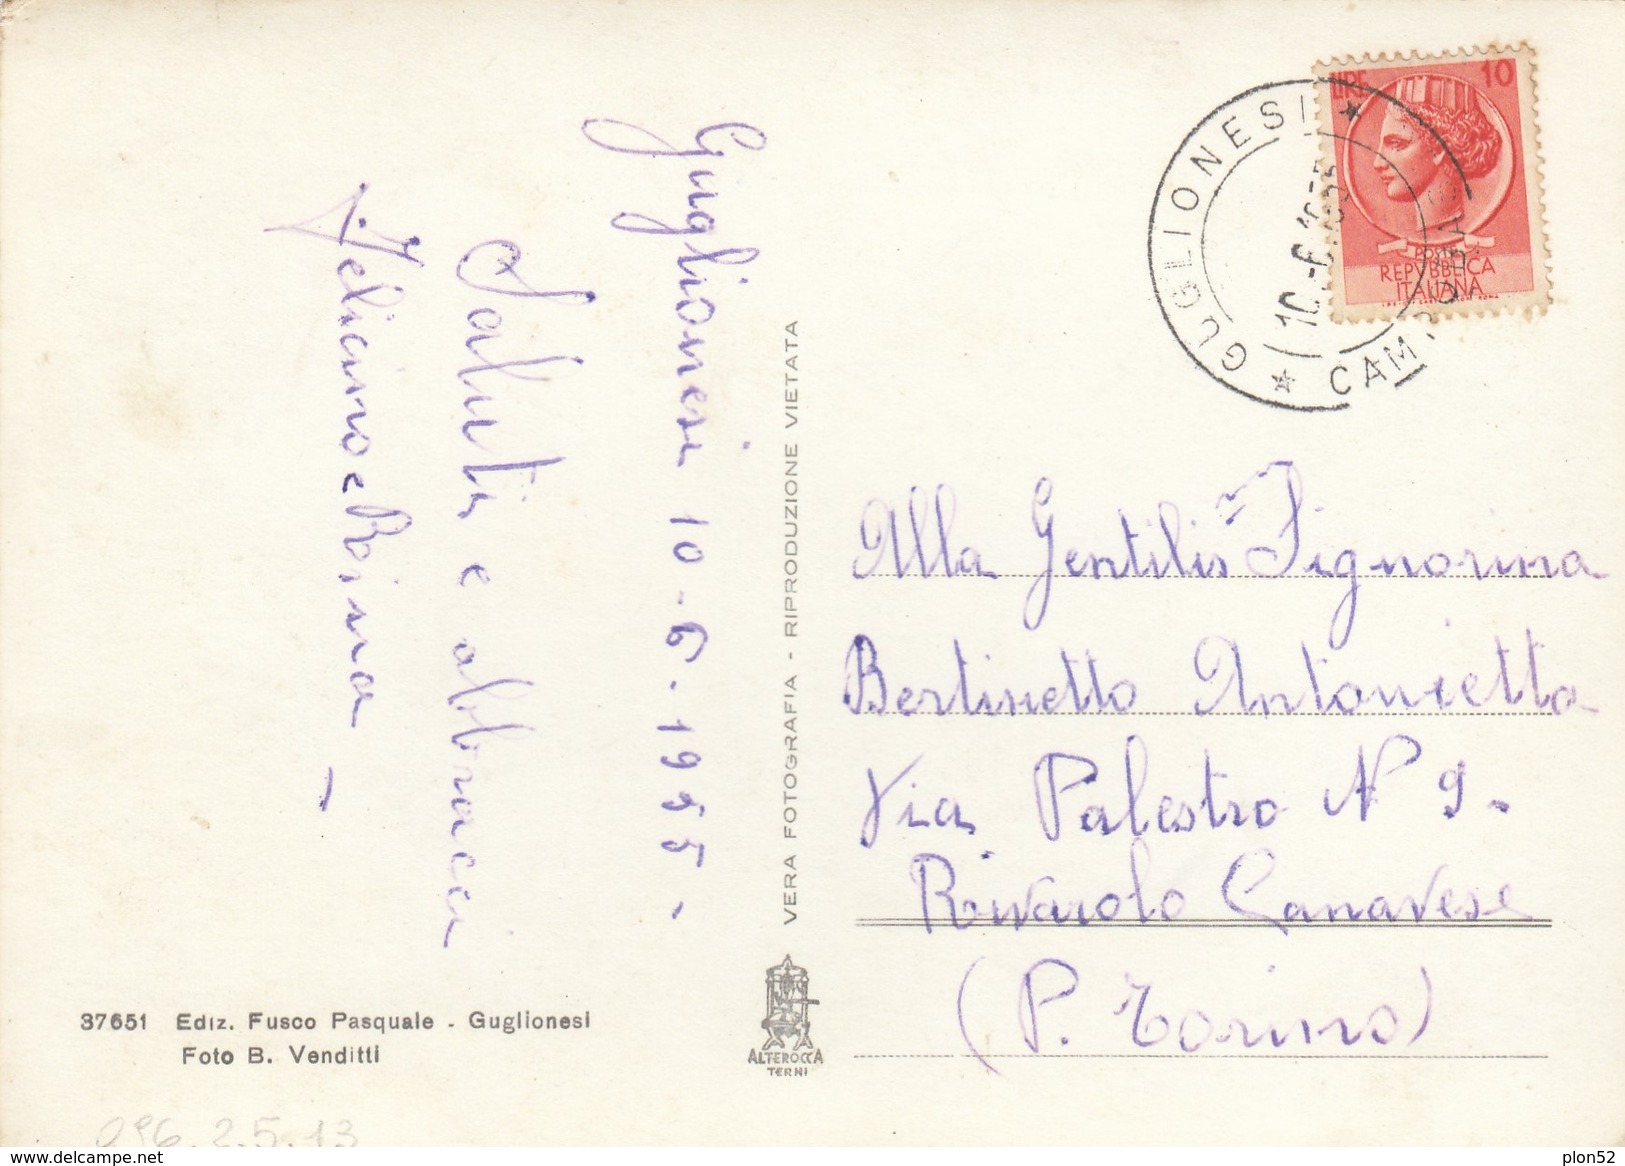 Guglionesi 10-6-1955-
Saluti e abbracci
Felicino e Rina -
37651 Ediz. Fusco Pasquale - Guglionesi
Foto B. Venditti
VERA FOTOGRAFIA - RIPRODUZIONE VIETATA
ALTEROCCA
TERNI
LIRE 10
POSTE
REPVBBLICA
ITALIANA
GUGLIONESI * CAMPOBASSO *
Alla Gentilis Signorina
Bertinetto Antonietta
Via Palestro N 9.
Rivarolo Canavese
(P. Torino)
096.2.5.13
www.delcampe.net
plon52